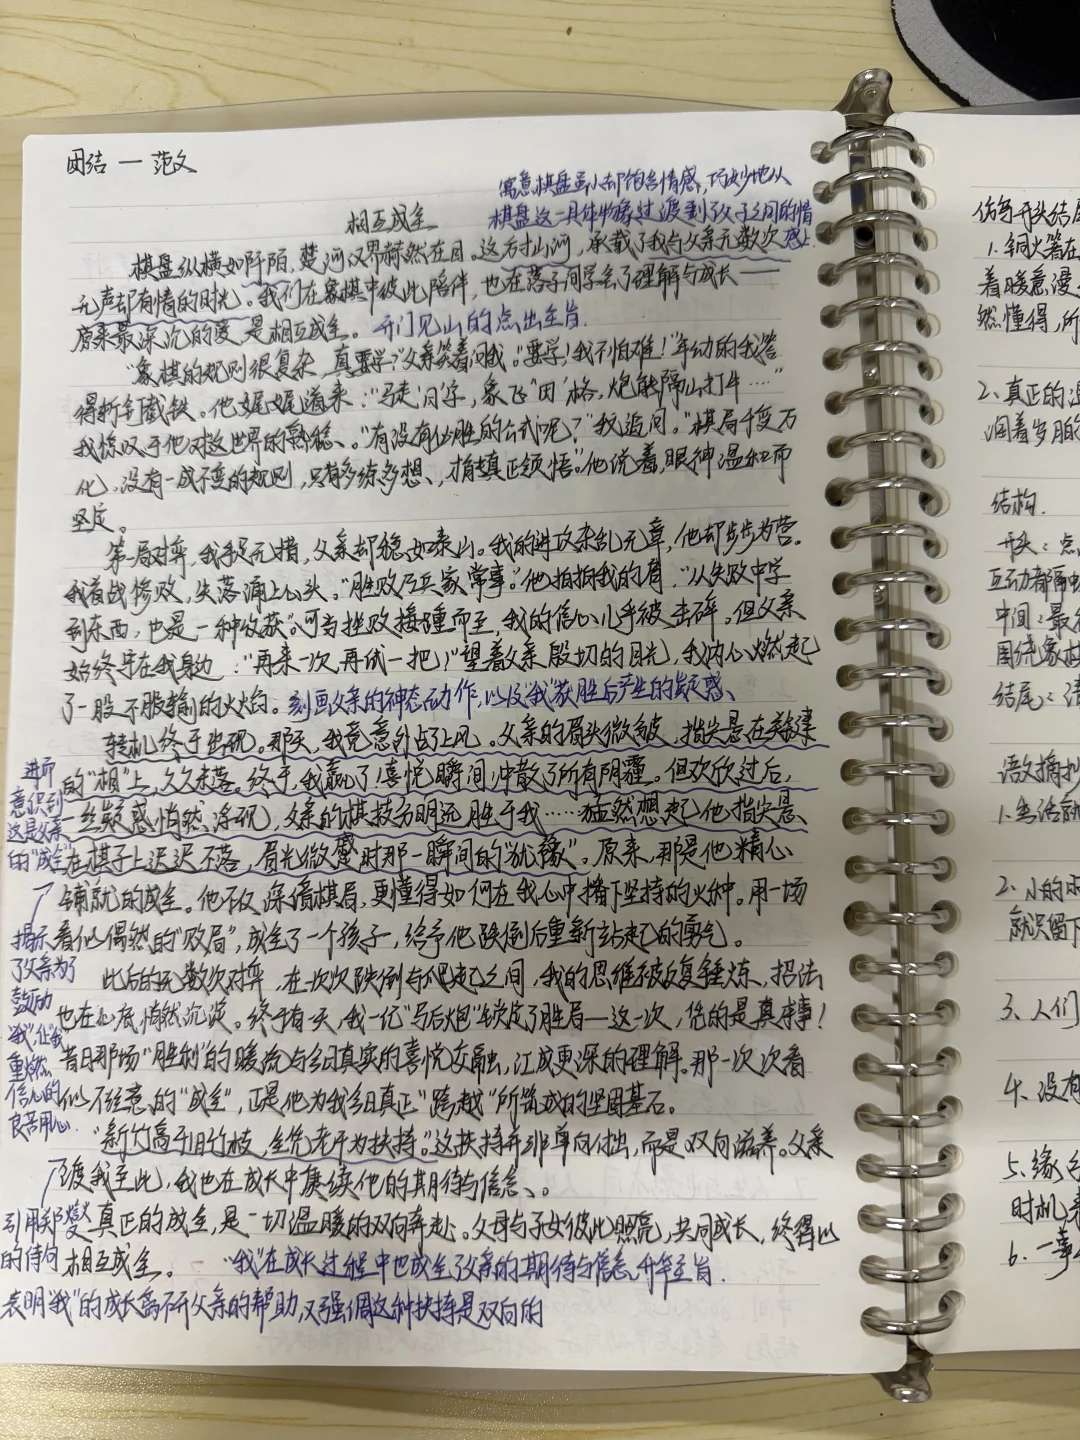 团结 — 范文
寓意棋盘虽小却饱含情感，巧妙地从
棋盘这一具体物象过渡到父子之间的情感上
相互成全
棋盘纵横如阡陌，楚河汉界赫然在目。这方寸山河，承载了我与父亲无数次
无声却有情的时光。我们在象棋中彼此陪伴，也在落子间学会了理解与成长——
原来最深沉的爱，是相互成全。开门见山的点出主旨.
"象棋的规则很复杂，真要学？"父亲笑着问我。"要学！我不怕难！"年幼的我答
得斩钉截铁。他娓娓道来："马走'日'字，象飞'田'格，炮能隔山打牛……"
我惊叹于他对这世界的熟稔、"有没有必胜的公式呢？"我追问。"棋局千变万
化，没有一成不变的规则，只有多练多想、，才能真正领悟"。他说着，眼神温和而
坚定。
第一局对弈，我手足无措，父亲却稳如泰山。我的进攻杂乱无章，他却步步为营。
我首战惨败，失落涌上心头。"胜败乃兵家常事。"他拍拍我的肩，"从失败中学
到东西，也是一种收获"。可当挫败接踵而至，我的信心几乎被击碎。但父亲
始终守在我身边："再来一次，再试一把！"望着父亲殷切的目光，我内心燃起
了一股不服输的火焰。刻画父亲的神态动作，以及"我"获胜后产生的疑惑、
转机终于出现。那天，我竟意外占了上风。父亲的眉头微皱，指尖悬在关键
的"相"上，久久未落。终于，我赢了！喜悦瞬间冲散了所有阴霾。但欢欣过后，
一丝疑惑悄然浮现，父亲的棋技分明远胜于我……猛然想起他指尖悬
在棋子上迟迟不落，眉光微蹙时那一瞬间的"犹豫"。原来，那是他精心
铺就的成全。他不仅深谙棋局，更懂得如何在我心中播下坚持的火种。用一场
看似偶然的"败局"，成全了一个孩子，给予他跌倒后重新站起的勇气。
此后的无数次对弈，在一次次跌倒与爬起之间，我的思维被反复锤炼、招法
也在心底悄然沉淀。终于有一天，我一记"马后炮"锁定了胜局——这一次，凭的是真本事！
昔日那场"胜利"的暖流与今日真实的喜悦交融，汇成更深的理解。那一次次看
似不经意的"成全"，正是他为我今日真正"跨越"所筑成的坚固基石。
"新竹高于旧竹枝，全凭老干为扶持。"这扶持并非单向付出，而是双向滋养。父亲
渡我至此，我也在成长中赓续他的期待与信念、。
真正的成全，是一切温暖的双向奔赴。父母与子女彼此照亮，共同成长，终得以
相互成全。"我"在成长过程中也成全了父亲的期待与信念，升华主旨.
进而
意识到
这是父亲
的"成全"
揭示
了父亲为了
鼓励
"我"，让"我"
重燃
信心的
良苦用心.
引用郑燮
的诗句
表明"我"的成长离不开父亲的帮助，又强调这种扶持是双向的
仿写开头结
1.铜火箸在
着暖意漫
然懂得，所
2、真正的
润着岁月的
结构.
开头：点
互动都隔
中间：最
围绕象棋
结尾：
语文摘抄
1.生活
2.小的
就只留下
3.人们
4.没有
5.缘
时机
6.一事